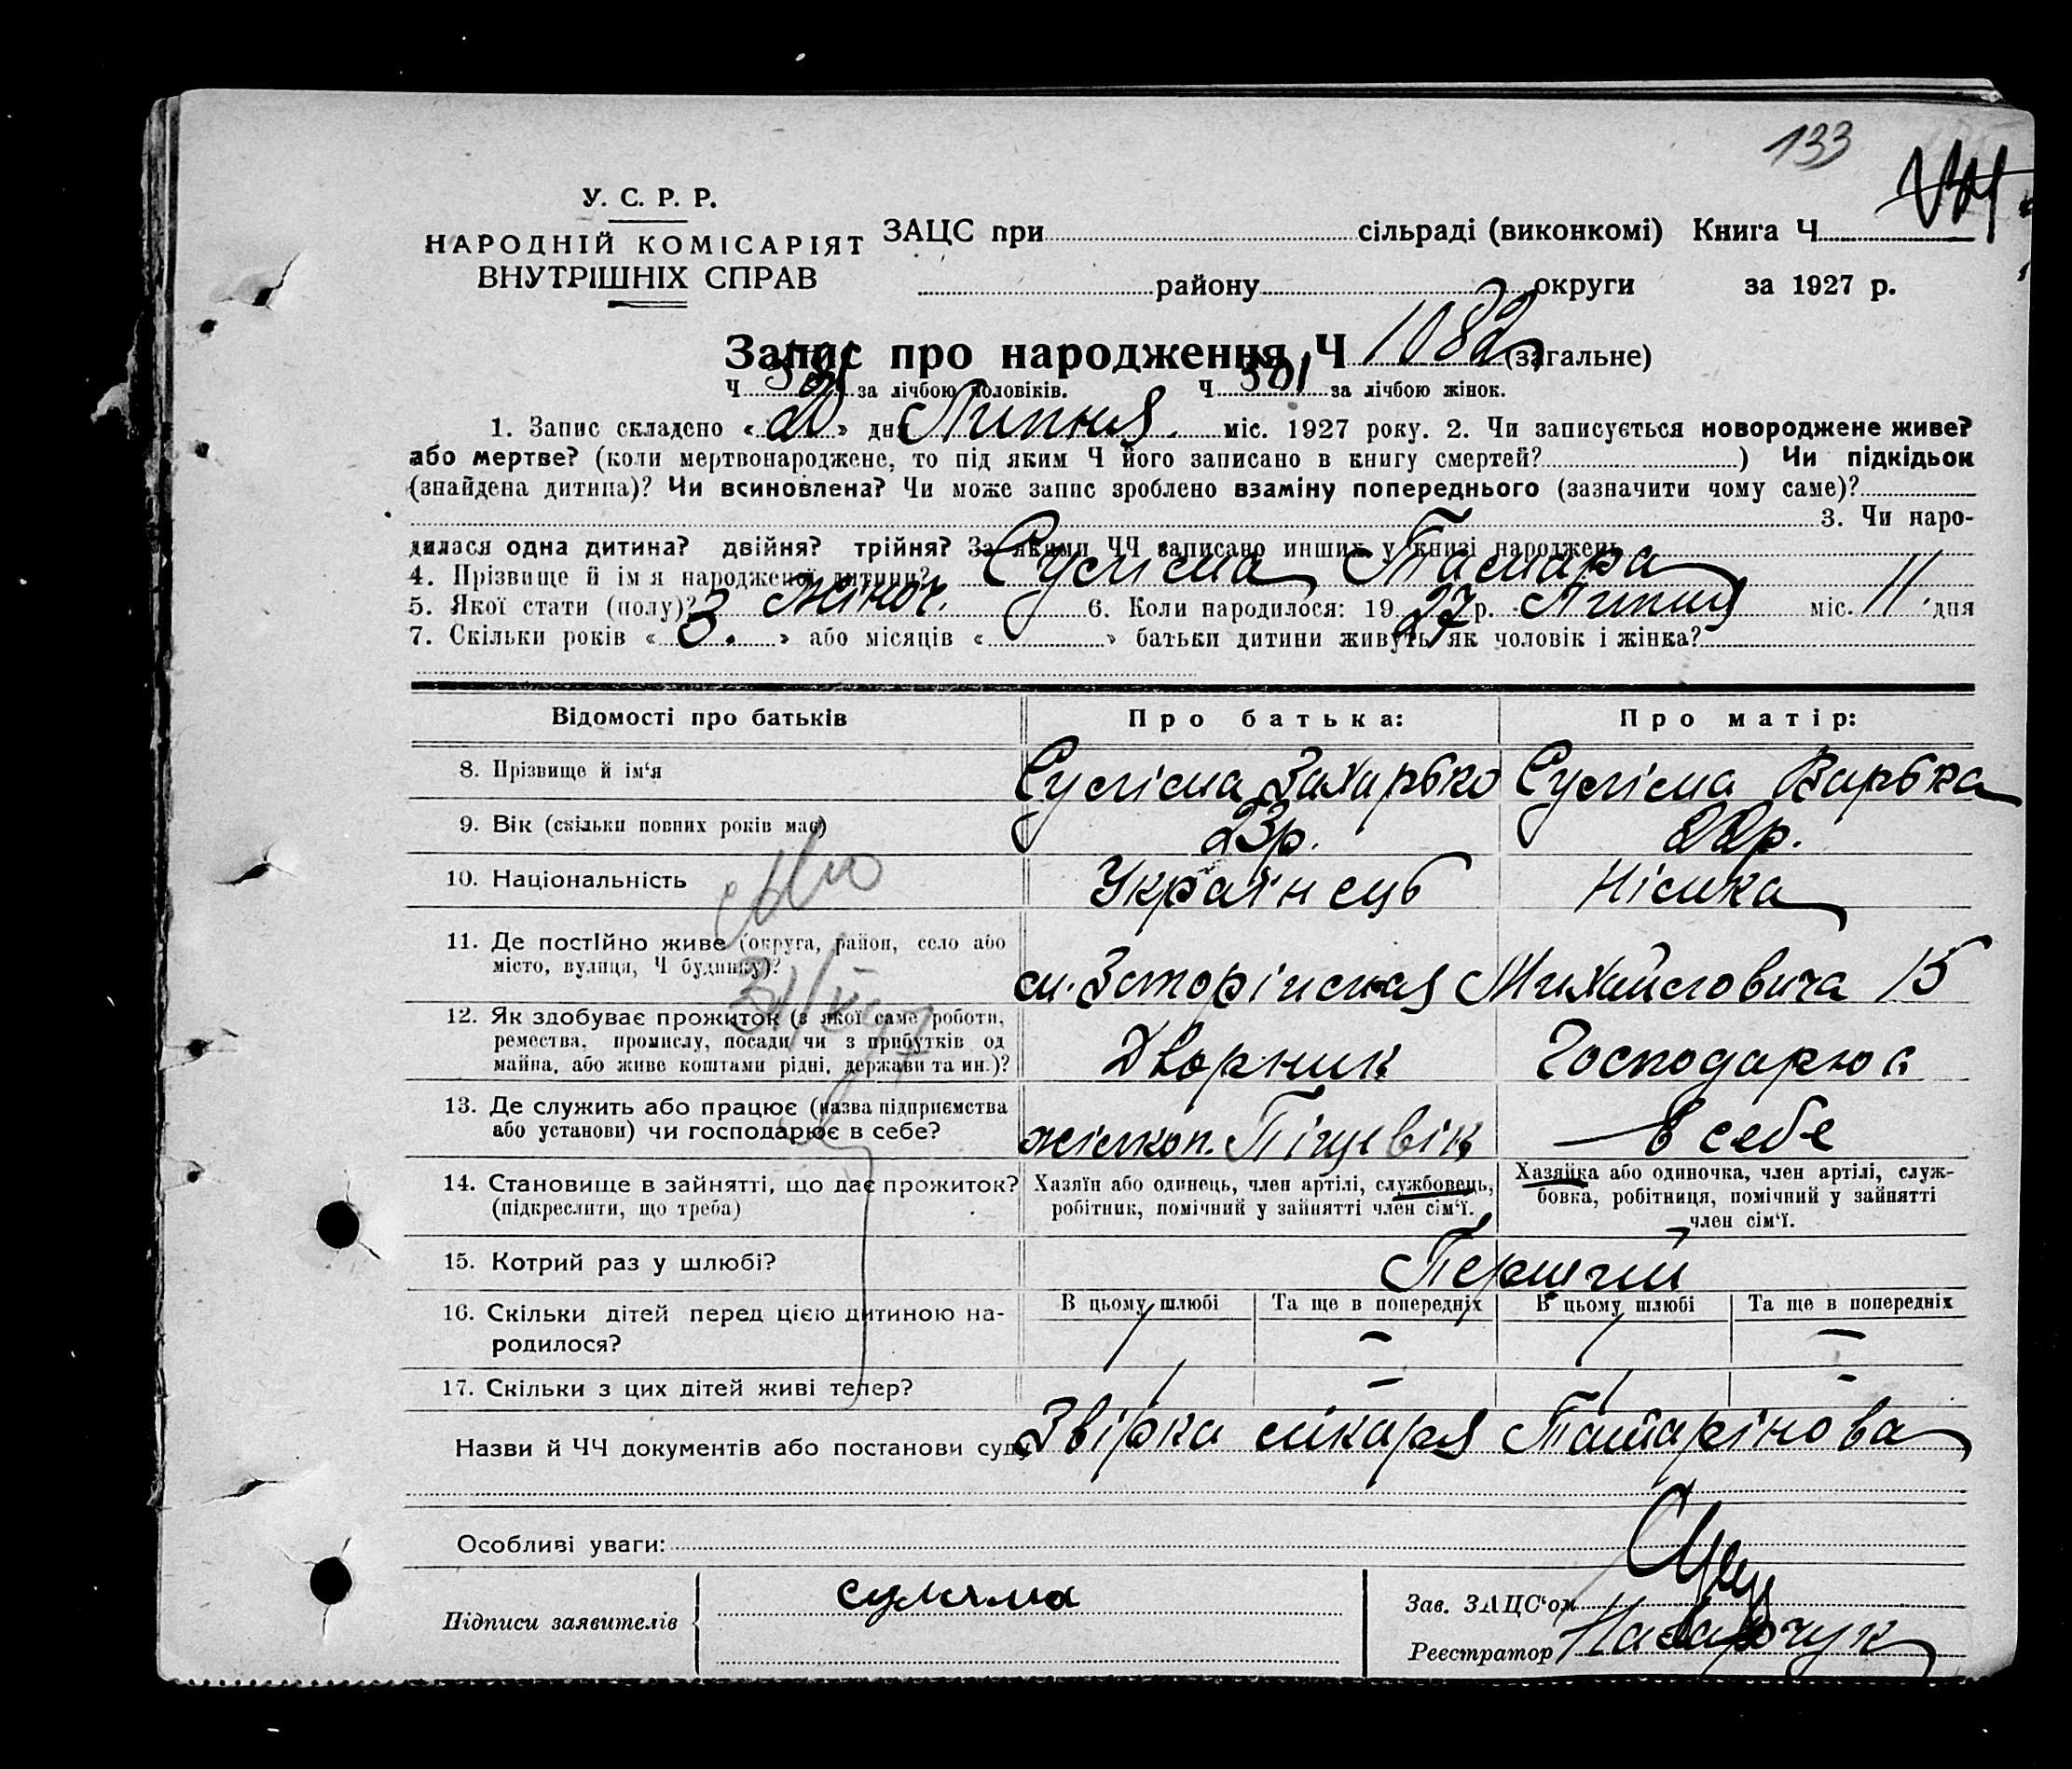 133
У. С. Р. Р.
НАРОДНІЙ КОМІСАРІЯТ
ВНУТРІШНІХ СПРАВ
ЗАЦС при сільраді (виконкомі) Книга Ч
району округи за 1927 р.
Запис про народження Ч 1082 (загальне)
Ч за лічбою чоловіків. Ч 501 за лічбою жінок.
1. Запис складено « » дня Липня міс. 1927 року. 2. Чи записується новороджене живе?
або мертве? (коли мертвонароджене, то під яким Ч його записано в книгу смертей? ) Чи підкідьок
(знайдена дитина)? Чи всиновлена? Чи може запис зроблено взаміну попереднього (зазначити чому саме)?
3. Чи наро-
дилася одна дитина? двійня? трійня? За якими ЧЧ записано инших у книзі народжень
4. Прізвище й ім'я народженої дитини? Тамара
5. Якої стати (полу)? жіноч. 6. Коли народилося: 1927 р. Липня міс. 11 дня
7. Скільки років « 3. » або місяців « » батьки дитини живуть як чоловік і жінка?
Відомості про батьків Про батька: Про матір:
8. Прізвище й ім'я Захарько Варька
9. Вік (скільки повних років має) 23р. 22р.
10. Національність Українець Німка
11. Де постійно живе (округа, район, село або
місто, вулиця, Ч будинку)? 15
12. Як здобуває прожиток (з якої саме роботи,
ремества, промислу, посади чи з прибутків од
майна, або живе коштами рідні, держави та ин.)? Дворник Господарює
13. Де служить або працює (назва підприємства
або установи) чи господарює в себе? жілкоп. Піщевік в себе
14. Становище в зайнятті, що дає прожиток?
(підкреслити, що треба)
Хазяїн або одинець, член артілі, службовець,
робітник, помічний у зайнятті член сім'ї.
Хазяйка або одиночка, член артілі, служ-
бовка, робітниця, помічний у зайнятті
член сім'ї.
15. Котрий раз у шлюбі? Перший
16. Скільки дітей перед цією дитиною на-
родилося?
В цьому шлюбі Та ще в попередніх В цьому шлюбі Та ще в попередніх
1 – 1 –
17. Скільки з цих дітей живі тепер? 1 – 1 –
Назви й ЧЧ документів або постанови суду Звірка лікаря
Особливі уваги:
Підписи заявителів
Зав. ЗАЦС'ом
Реєстратор